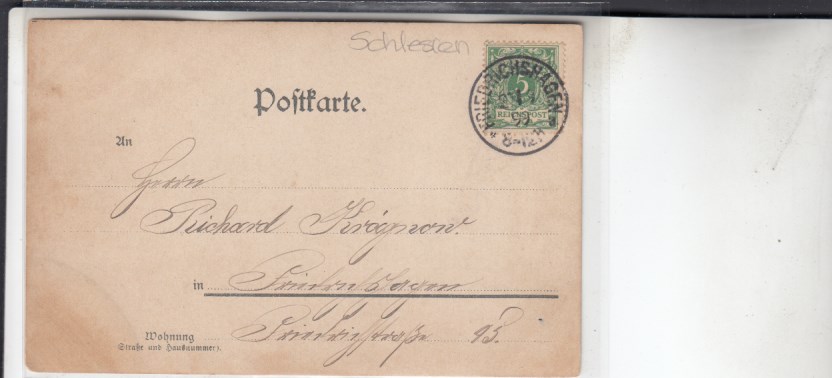 Schlesien
Postkarte.
FRIEDRICHSHAGEN
5
REICHSPOST
97
8-12V
An
Herrn
Richard Krögnow.
in Friedrichshagen
Wohnung
(Straße und Hausnummer).
Friedrichstraße 95.